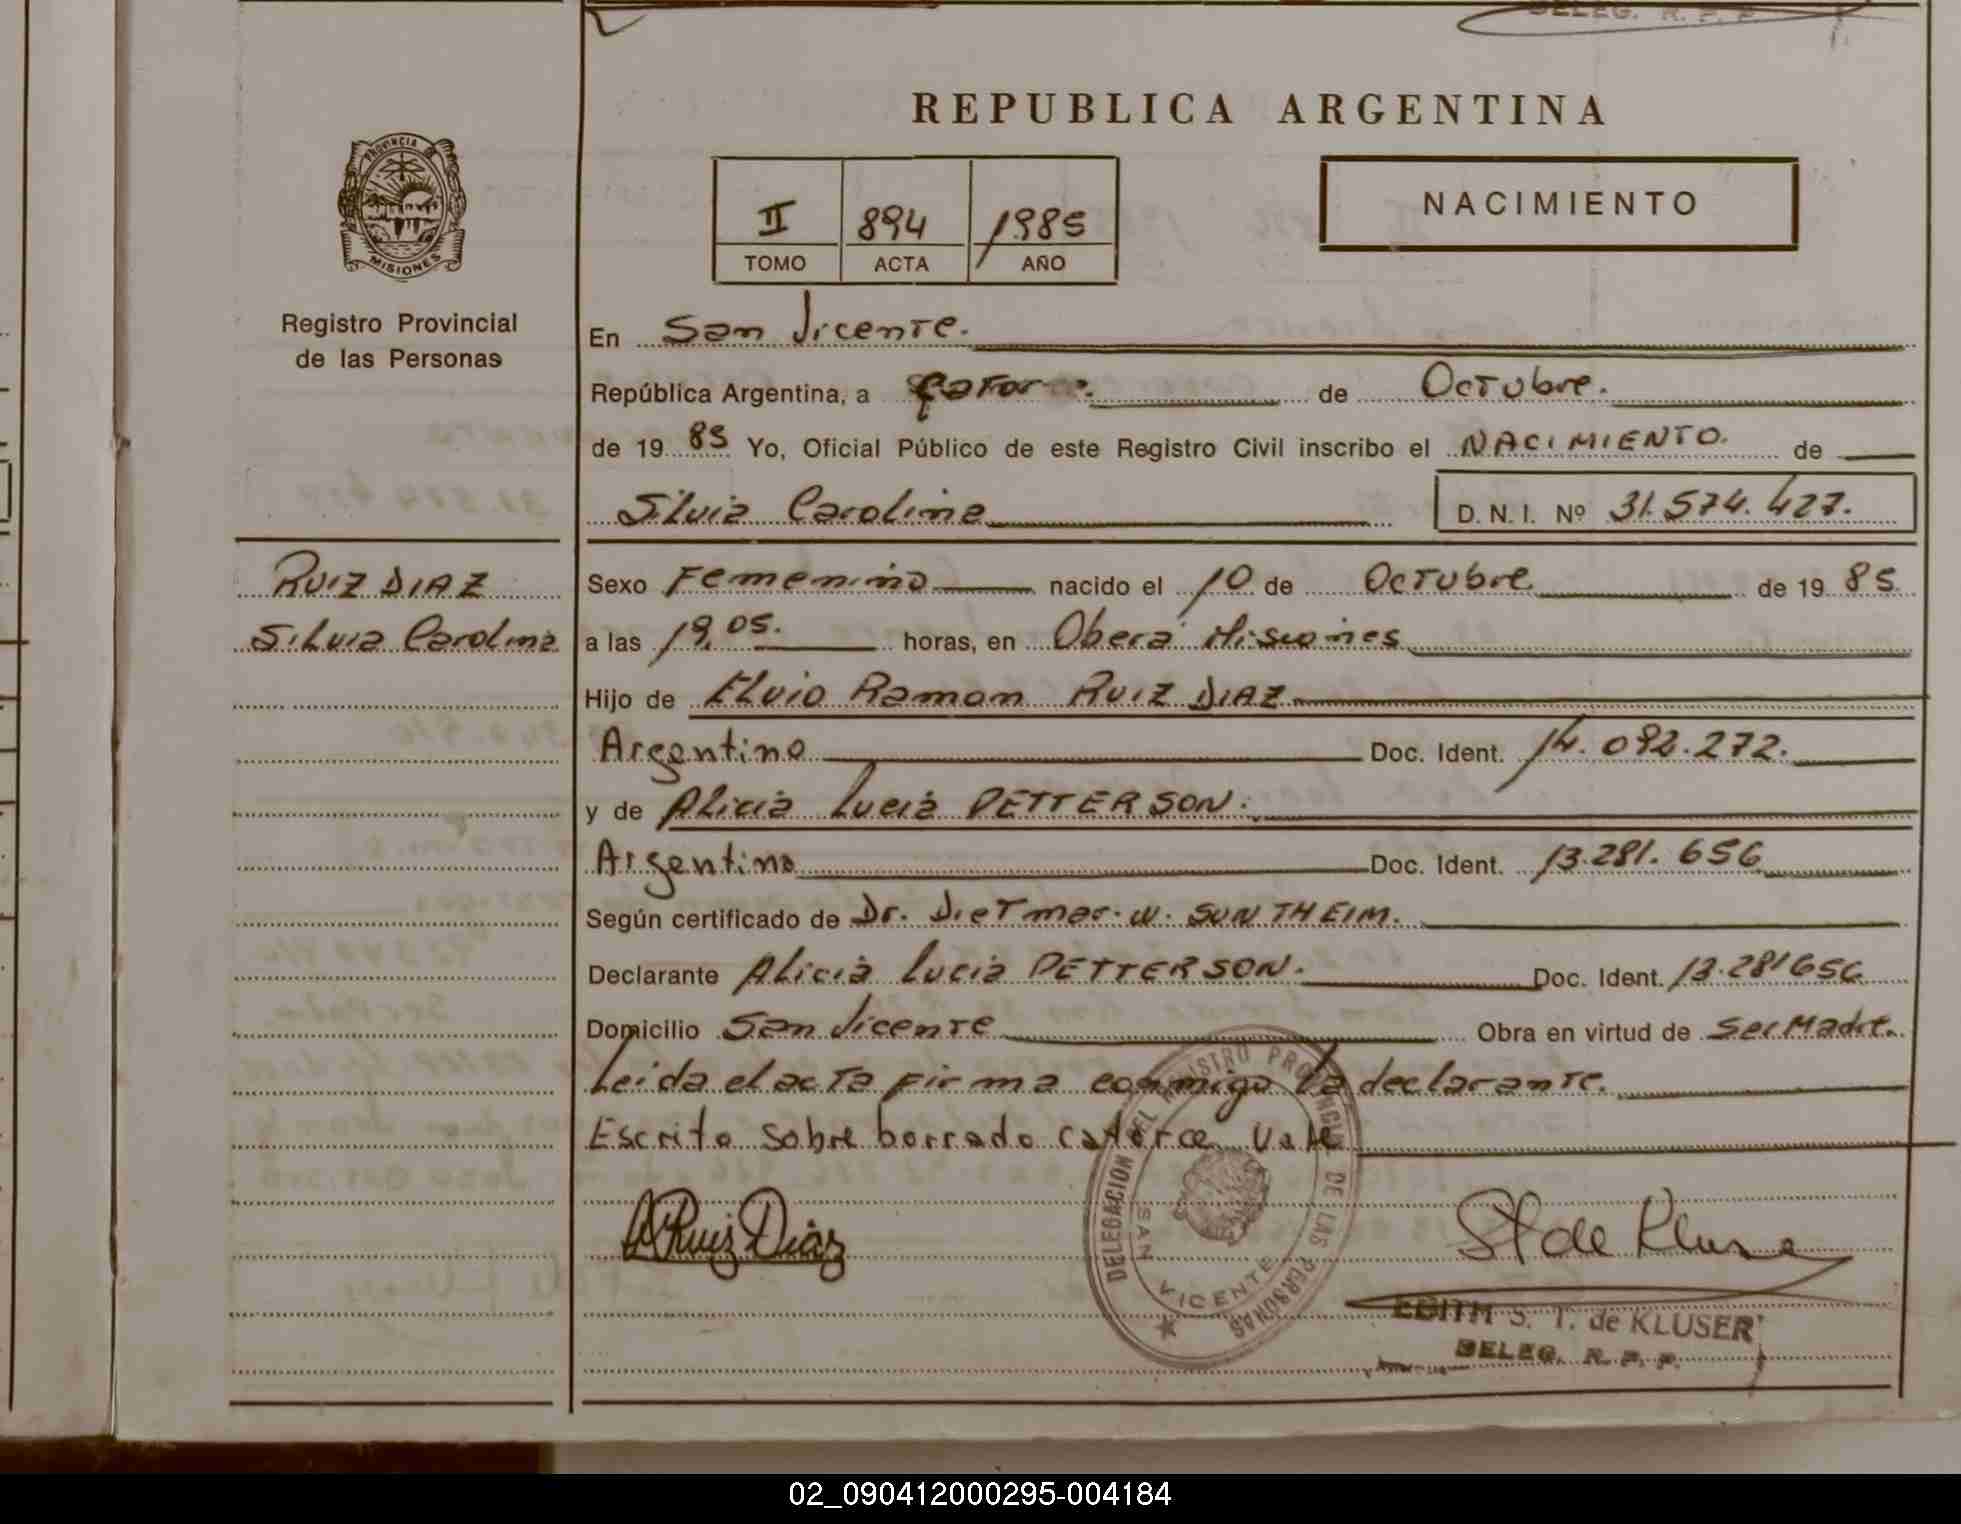 DELEG. R. P. P.
REPUBLICA ARGENTINA
PROVINCIA DE
MISIONES
Registro Provincial
de las Personas
II 894 1985
TOMO ACTA AÑO
NACIMIENTO
En San Vicente.
República Argentina, a Catorce. de Octubre.
de 19 85 Yo, Oficial Público de este Registro Civil inscribo el NACIMIENTO. de
Silvia Carolina D. N. I. Nº 31.574.427.
RUIZ DIAZ
Silvia Carolina
Sexo Femenino nacido el 10 de Octubre de 19 85.
a las 19,05. horas, en Oberá Misiones
Hijo de Elvio Ramon RUIZ DIAZ
Argentino Doc. Ident. 14.092.272.
y de Alicia Lucia PETTERSON.
Argentina Doc. Ident. 13.281.656
Según certificado de Dr. Dietmar W. SUNTHEIM.
Declarante Alicia Lucia PETTERSON. Doc. Ident. 13.281656
Domicilio San Vicente Obra en virtud de Ser Madre.
Leida el acta firma conmigo la declarante.
Escrito sobre borrado catorce Vale
DELEGACION DEL REGISTRO PROVINCIAL DE LAS PERSONAS
SAN VICENTE
A Ruiz Diaz
ST de Kluser
EDITH S. T. de KLUSER
DELEG. R. P. P.
02_090412000295-004184